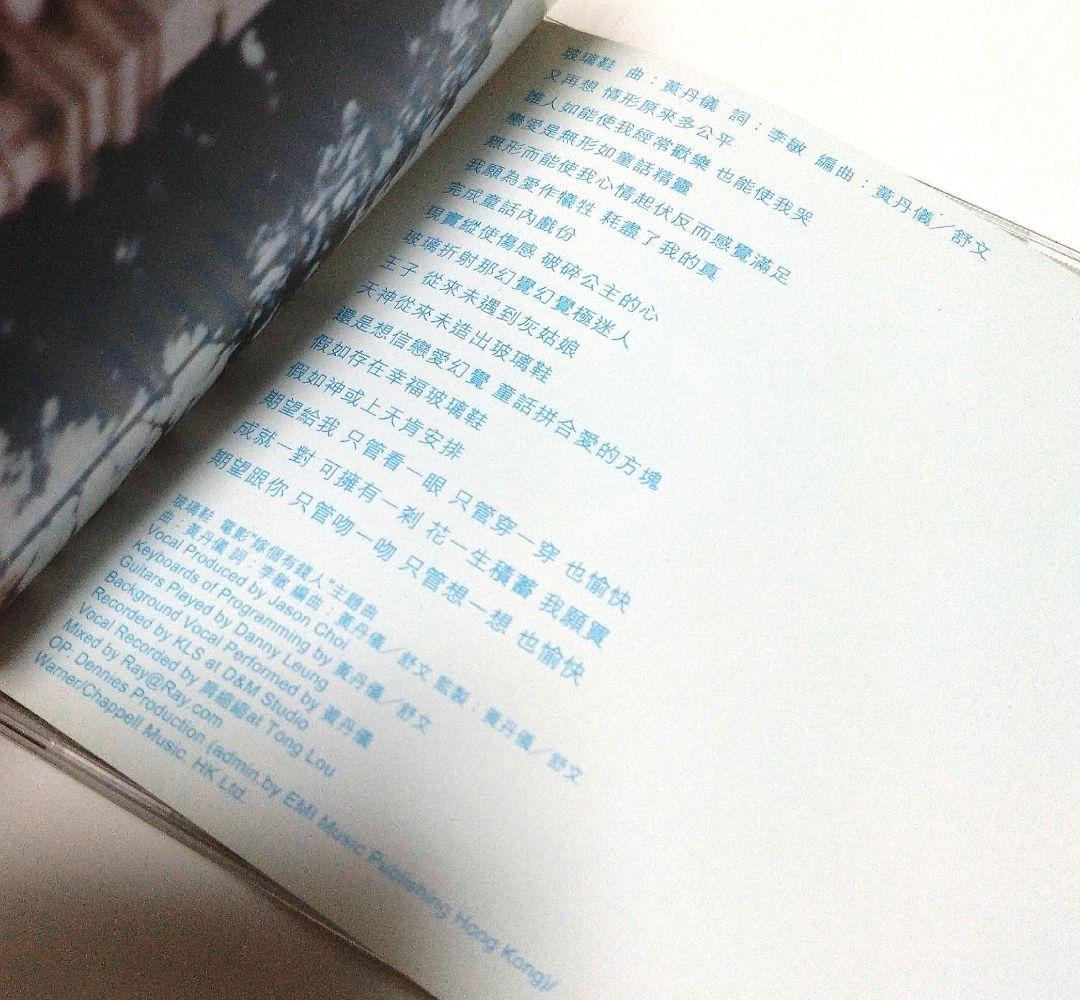 玻璃鞋 曲：黃丹儀 詞：李敏 編曲：黃丹儀／舒文
又再想 情形原來多公平
誰人如能使我經常歡樂 也能使我哭
戀愛是無形如童話精靈
無形而能使我心情起伏反而感覺滿足
我願為愛作犧牲 耗盡了我的真
完成童話內戲份
現實縱使傷感 破碎公主的心
玻璃折射那幻覺幻覺極迷人
王子 從來未遇到灰姑娘
天神從來未造出玻璃鞋
還是想信戀愛幻覺 童話拼合愛的方塊
假如存在幸福玻璃鞋
假如神或上天肯安排
期望給我 只管看一眼 只管穿一穿 也愉快
成就一對 可擁有一剎 花一生積蓄 我願買
期望跟你 只管吻一吻 只管想一想 也愉快
玻璃鞋 電影"嫁個有錢人"主題曲
曲：黃丹儀 詞：李敏 編曲：黃丹儀／舒文 監製：黃丹儀／舒文
Vocal Produced by Jason Choi
Keyboards of Programming by 黃丹儀／舒文
Guitars Played by Danny Leung
Background Vocal Performed by 黃丹儀
Recorded by KLS at D&M Studio
Vocal Recorded by at Tong Lou
Mixed by Ray@Ray.com
OP: Dennies Production (admin.by EMI Music Publishing Hong Kong)/
Warner/Chappell Music. HK Ltd.